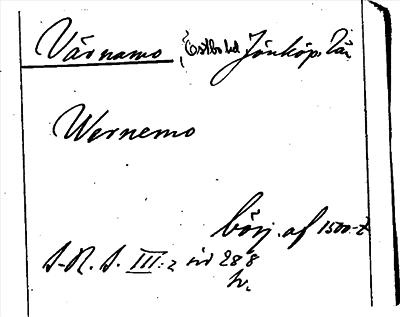 Värnamo, Östbo hd Jönköp. län
Wernemo
börj. af 1500-t
S. R. S. III:2 sid 288
h.